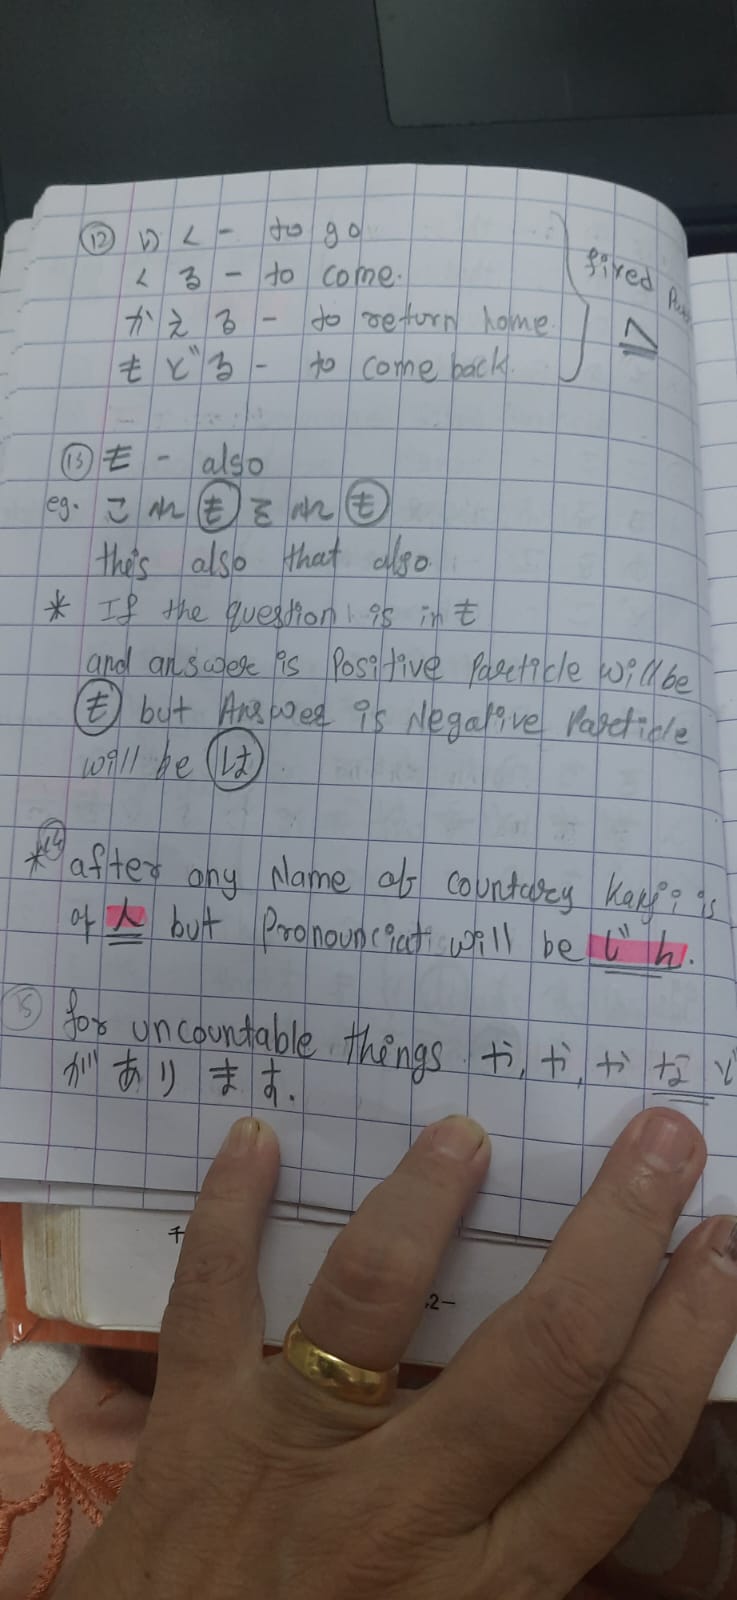 ⑫ いく - to go
くる - to come.
かえる - to return home.
もどる - to come back.
fixed
へ
⑬ も - also
eg. これもそれも
this also that also.
* If the question is in も
and answer is Positive Particle will be
も but Answer is Negative Particle
will be は.
*⑭ after any Name of Countary Kanji is
of 人 but Pronounciati will be じん.
⑮ for uncountable things や, や, や など
があります.
千
2-